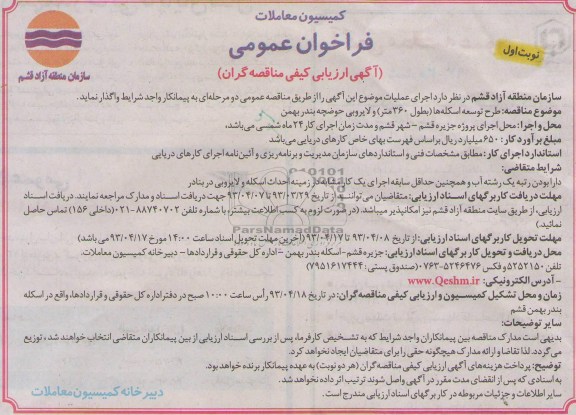 کمیسیون معاملات
فراخوان عمومی
نوبت اول
(آگهی ارزیابی کیفی مناقصه گران)
سازمان منطقه آزاد قشم
سازمان منطقه آزاد قشم در نظر دارد اجرای عملیات موضوع این آگهی را از طریق مناقصه عمومی دو مرحله‌ای به پیمانکار واجد شرایط واگذار نماید.
موضوع مناقصه: طرح توسعه اسکله‌ها (بطول ۳۶۰ متر) و لایروبی حوضچه بندر بهمن
محل و اجرا: محل اجرای پروژه جزیره قشم – شهر قشم و مدت زمان اجرای کار ۲۴ ماه شمسی می‌باشد.
مبلغ برآورد کار: ۶۵۰ میلیارد ریال براساس فهرست بهای خاص کارهای دریایی می‌باشد
استاندارد اجرای کار: مطابق مشخصات فنی و استانداردهای سازمان مدیریت و برنامه‌ریزی و آئین‌نامه اجرای کارهای دریایی
شرایط متقاضی:
دارا بودن رتبه یک رشته آب و همچنین حداقل سابقه اجرای یک کار مشابه در زمینه احداث اسکله و لایروبی در بنادر
مهلت دریافت کاربرگهای اسناد ارزیابی: متقاضیان می‌توانند از تاریخ ۹۳/۰۳/۲۹ تا ۹۳/۰۴/۰۷ جهت دریافت اسناد و مدارک مراجعه نمایند. دریافت اسناد
ارزیابی، از طریق سایت منطقه آزاد قشم نیز امکانپذیر میباشد. (در صورت لزوم به کسب اطلاعات بیشتر، با شماره تلفن ۸۸۷۴۰۷۰۲-۰۲۱ (داخلی ۱۵۶) تماس حاصل
نمائید.)
مهلت تحویل کاربرگهای اسناد ارزیابی: از تاریخ ۹۳/۰۴/۰۸ تا ۹۳/۰۴/۱۷ (آخرین مهلت تحویل اسناد ساعت ۱۴:۰۰ مورخ ۹۳/۰۴/۱۷ می باشد)
محل دریافت و تحویل کاربرگهای اسناد ارزیابی: جزیره قشم-اسکله بندر بهمن –اداره کل حقوقی و قراردادها – دبیرخانه کمیسیون معاملات.
تلفن ۵۲۵۲۱۵۰ و فکس ۵۲۴۶۴۷۶-۰۷۶۳ (صندوق پستی: ۷۹۵۱۶۱۷۴۴۴)
- آدرس الکترونیکی: www.Qeshm.ir
زمان و محل تشکیل کمیسیون و ارزیابی کیفی مناقصه گران: در تاریخ ۹۳/۰۴/۱۸ رأس ساعت ۱۰:۰۰ صبح در دفتر اداره کل حقوقی و قراردادها، واقع در اسکله
بندر بهمن قشم
سایر توضیحات:
بدیهی است مدارک مناقصه بین پیمانکاران واجد شرایط که به تشخیص کارفرما، پس از بررسی اسناد ارزیابی از بین پیمانکاران متقاضی انتخاب خواهند شد، توزیع
می گردد. لذا تقاضا و ارائه مدارک هیچگونه حقی را برای متقاضیان ایجاد نخواهد کرد.
توضیح: پرداخت هزینه‌های آگهی ارزیابی کیفی مناقصه گران (هر دو نوبت) به عهده پیمانکار برنده خواهد بود.
به اسنادی که پس از انقضای مدت مقرر در آگهی واصل شوند ترتیب اثر داده نخواهد شد.
سایر اطلاعات و جزئیات مربوطه در کاربرگهای اسناد ارزیابی مندرج است.
دبیرخانه کمیسیون معاملات
ParsNamadData